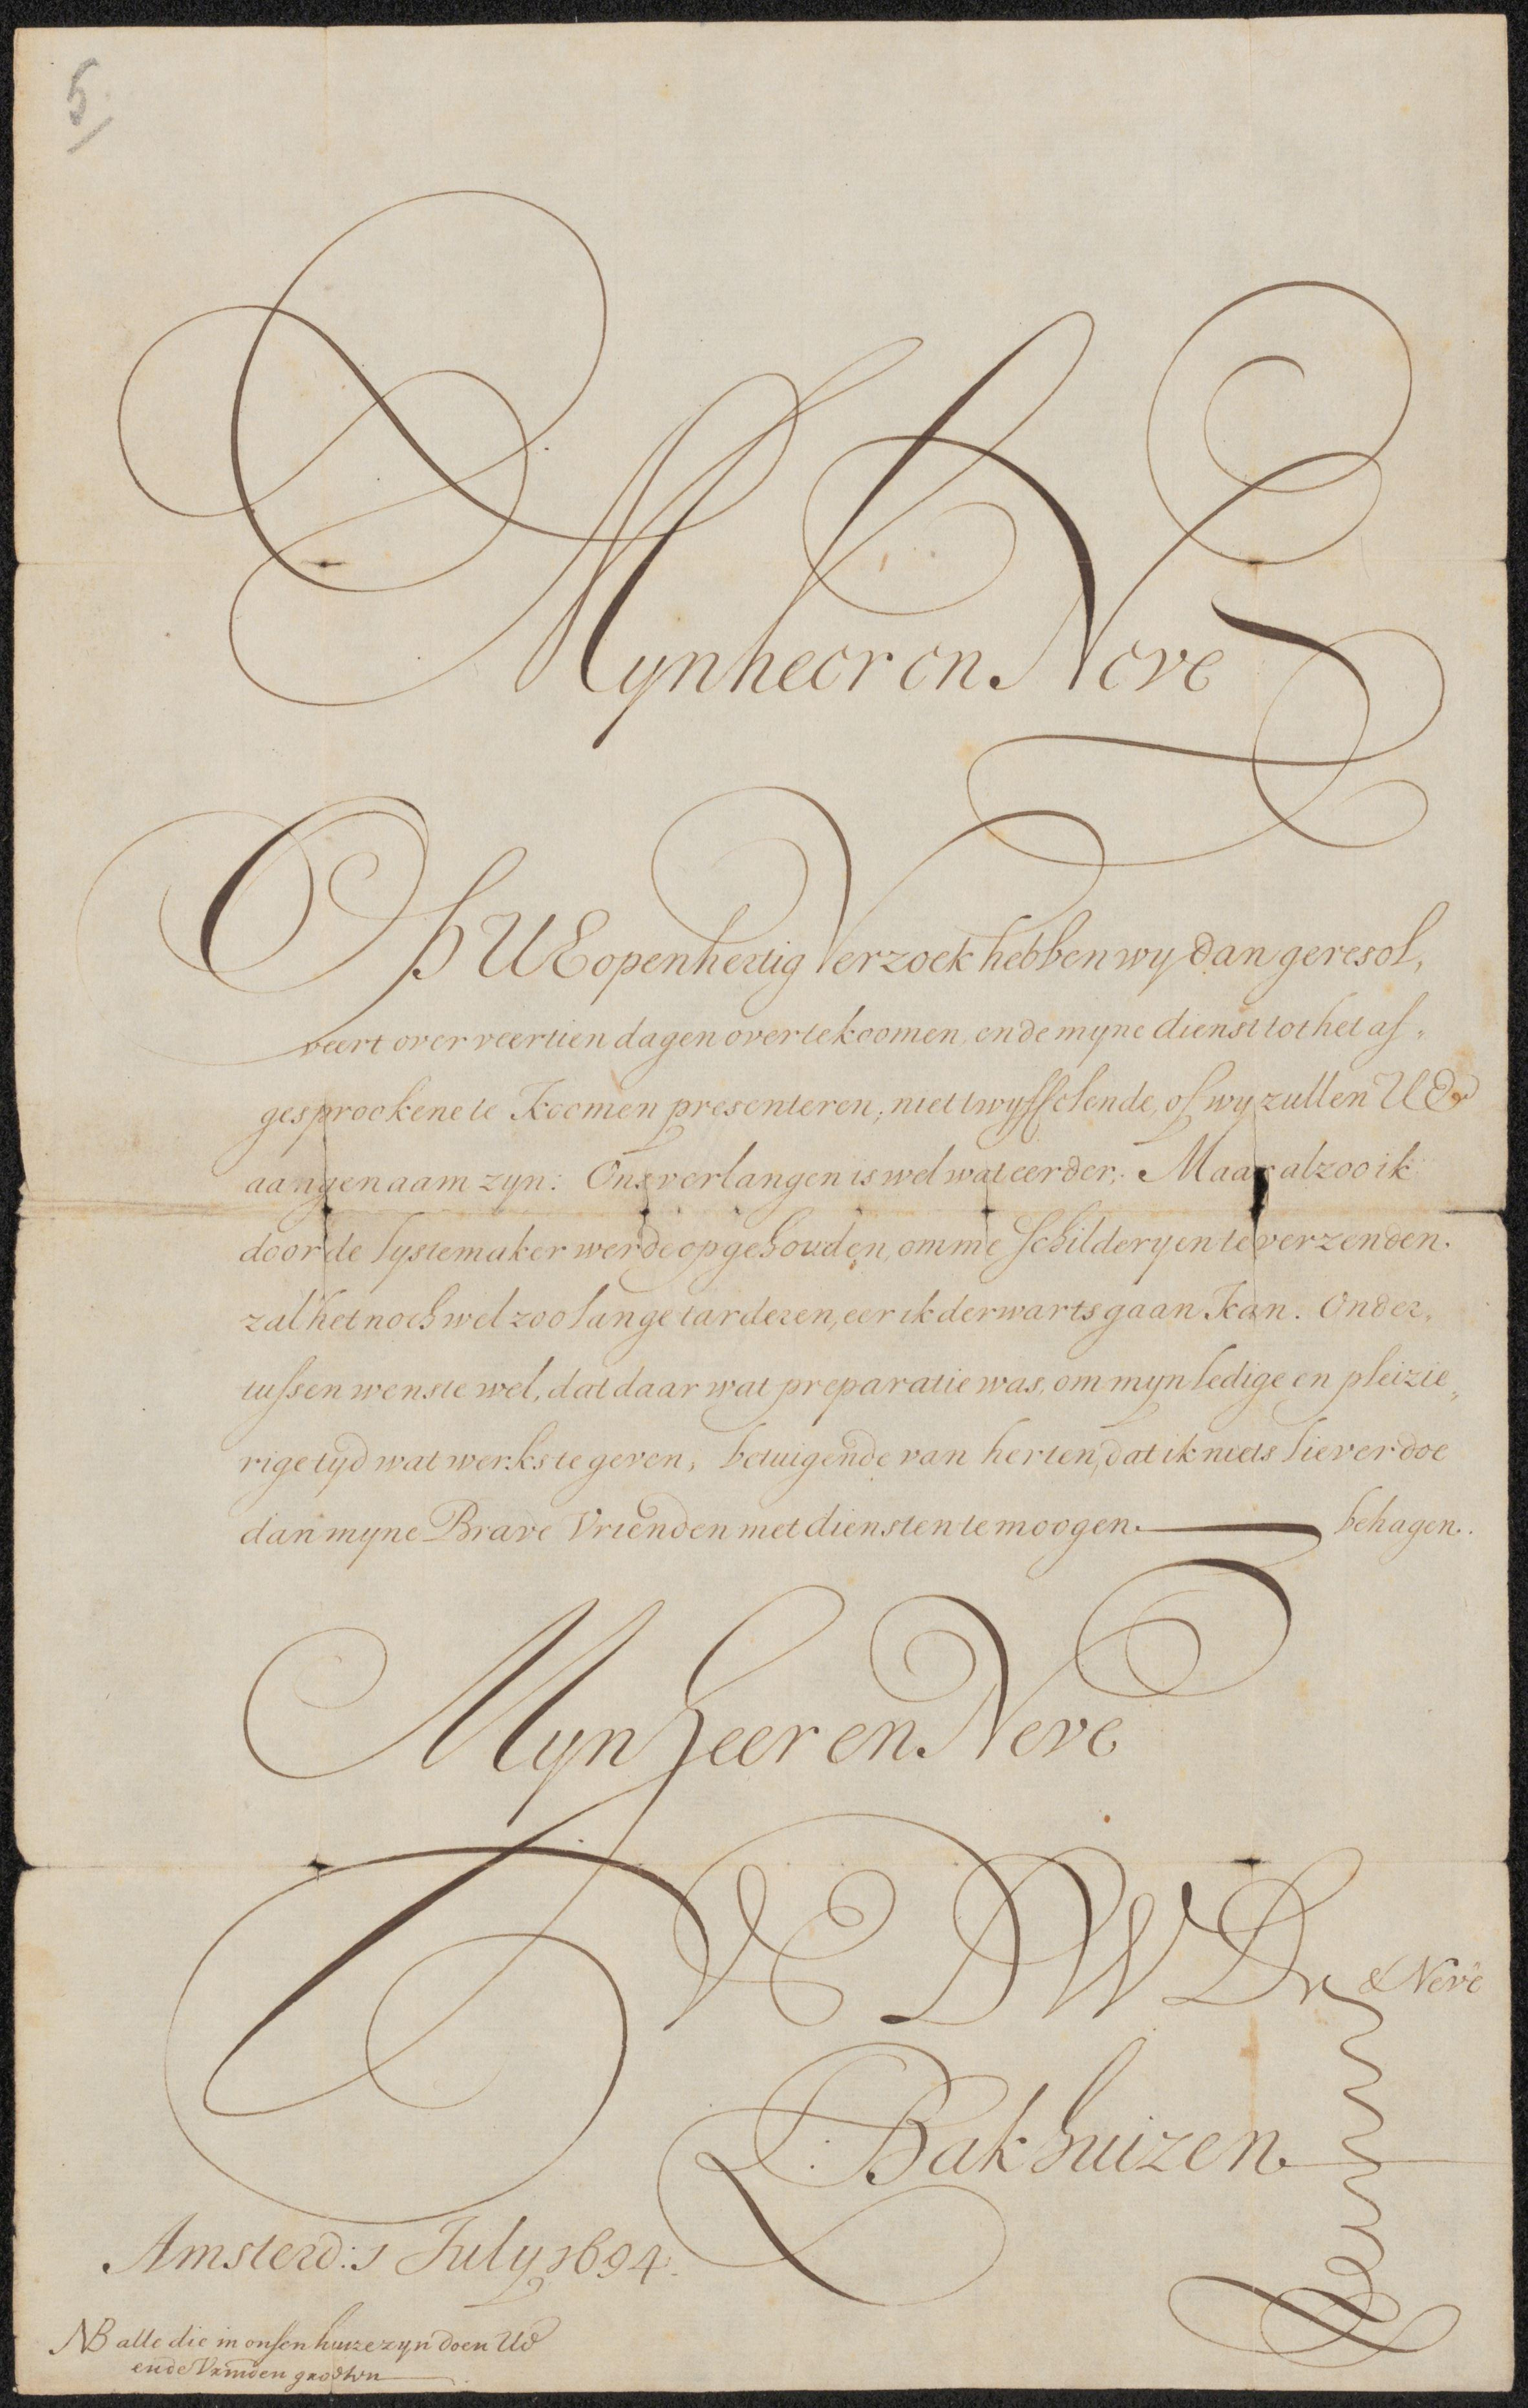 5
Mynheer en Neve
Op UE openhertig Verzoek hebben wy dan geresol,
veert over veertien dagen over te koomen, ende myne dienst tot het af,
gesprookene te koomen presenteren, niet twyffelende, of wy zullen UE
aangenaam zyn: Ons verlangen is wel wat eerder; Maar alzoo ik
door de lystemaker werde opgehouden, omme schilderyen te verzenden.
zal het noch wel zoo lange tarderen, eer ik derwarts gaan kan. Onder,
tussen wenste wel, dat daar wat preparatie was, om myn ledige en pleizie,,
rige tyd wat werks te geven, betuigende van herten, dat ik niets liever doe
dan myne Brave Vrienden met diensten te moogen behagen.
Mynheer en Neve
UE DW Dr & Neve
L: Bakhuizen
Amsterd: 1 July 1694.
NB alle die in onsen huize zyn doen UE
ende Vrinden groeten